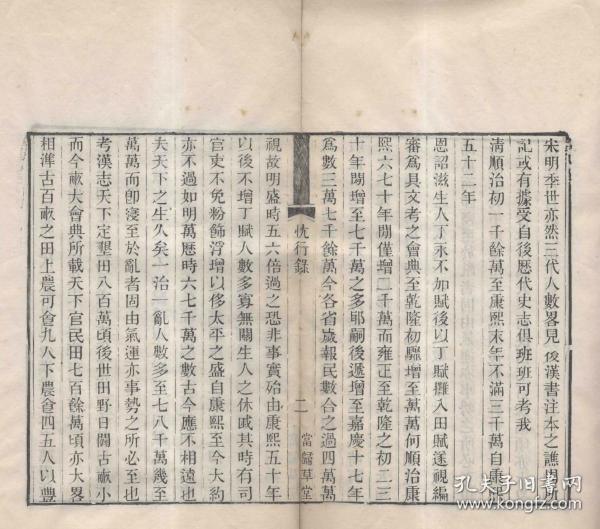 宋明季世亦然三代人數畧見後漢書注本之譙周所
記或有據受自後歷代史志俱班班可考我
淸順治初一千餘萬至康熙末年不滿三千萬自康熙
五十二年
恩詔滋生人丁永不加賦後以丁賦攤入田賦遂視編
審爲具文考之會典至乾隆初驟增至萬萬何順治康
熙六七十年閒僅增二千萬而雍正至乾隆之初二三
十年閒增至七千萬之多耶嗣後遞增至嘉慶十七年
爲數三萬七千餘萬今各省歲報民數合之過四萬萬
忱行錄
二
當歸草堂
視故明盛時五六倍過之恐非事實殆由康熙五十年
以後不增丁賦人數多寡無關生人之休戚其時有司
官吏不免粉飾浮增以侈太平之盛自康熙至今大約
亦不過如明萬歷時六七千萬之數古今應不相遠也
夫天下之生久矣一治一亂人數多至七八千萬幾至
萬萬而卽寖至於亂者固由氣運亦事勢之所必至也
考漢志天下定墾田八百萬頃後世田野日闢古畝小
而今畝大會典所載天下官民田七百餘萬頃亦大畧
相準古百畝之田上農可食九人下農食四五人以豐
孔夫子旧书网
www.kongfz.com